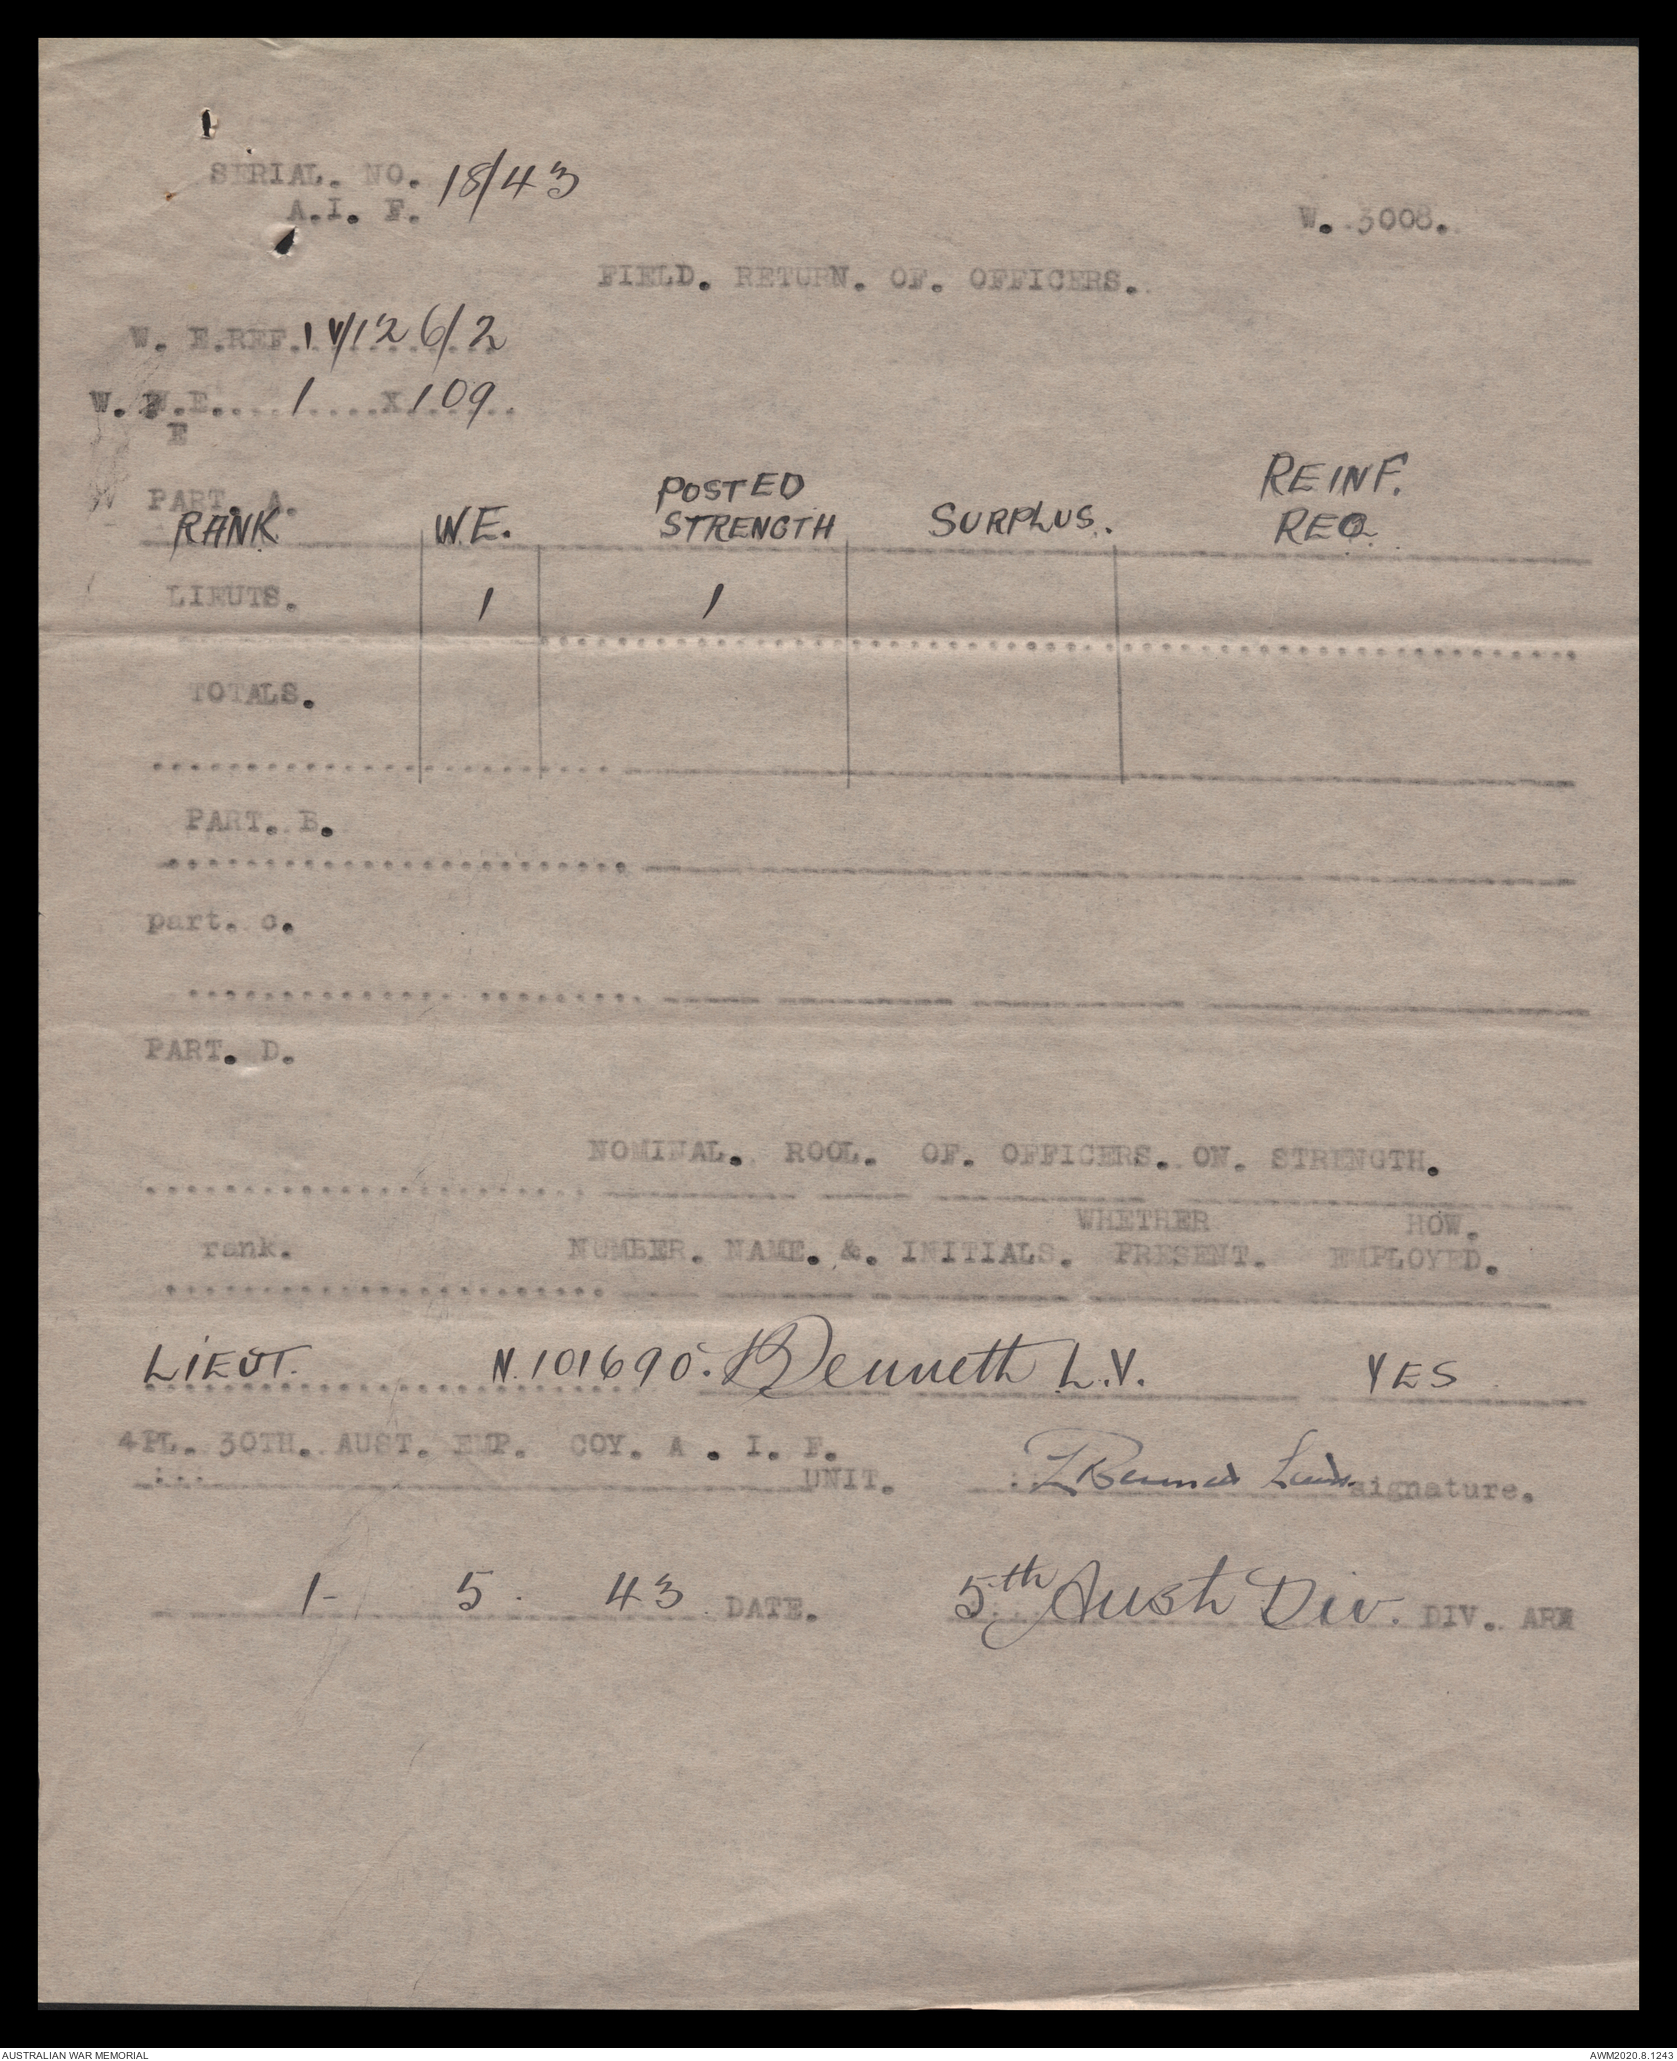 SERIAL. NO. 18/43
A.I. F.
W. 3008.
FIELD. RETURN. OF. OFFICERS.
W. E.REF. IV/126/2
W. W.E.... 1 ....X 109
E
PART. A.
RANK W.E. POSTED STRENGTH SURPLUS. REINF. REQ.
LIEUTS. 1 1
TOTALS.
PART. B.
part. c.
PART. D.
NOMINAL. ROOL. OF. OFFICERS. ON. STRENGTH.
WHETHER HOW.
rank. NUMBER. NAME. &. INITIALS. PRESENT. EMPLOYED.
LIEUT. N.101690. Bennett L.V. YES
4PL. 30TH. AUST. EMP. COY. A . I. F.
UNIT. LBennett Lieut. signature.
1- 5. 43 DATE. 5th Aust Div. DIV. ARM
AUSTRALIAN WAR MEMORIAL AWM2020.8.1243